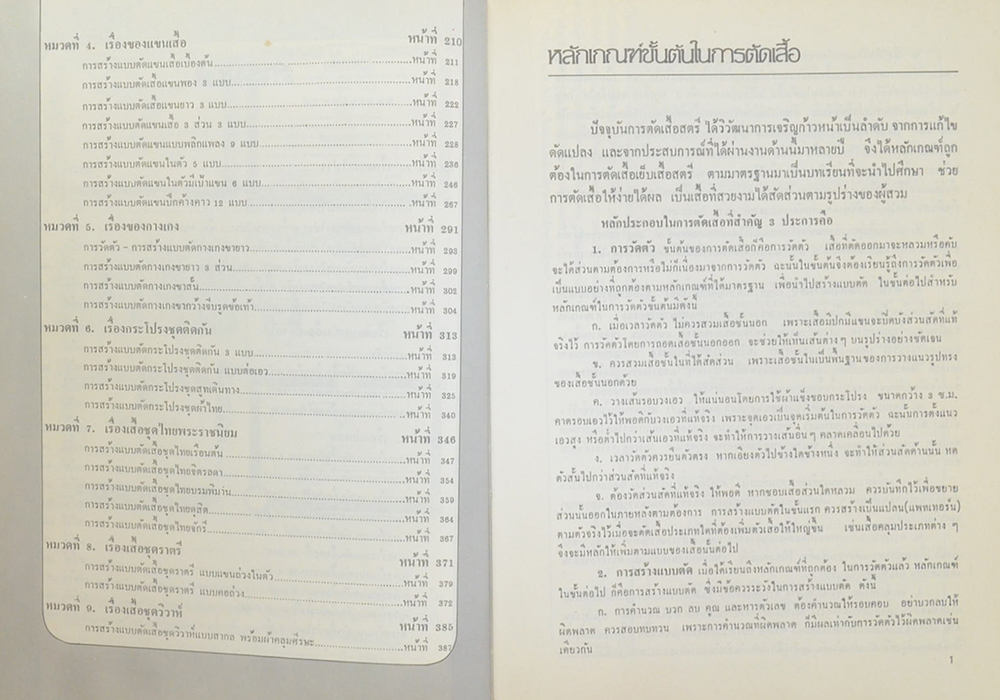 หมวดที่ 4. เรื่องของแขนเสื้อ หน้าที่ 210
การสร้างแบบตัดแขนเสื้อเบื้องต้น หน้าที่ 211
การสร้างแบบตัดเสื้อแขนพอง 2 แบบ หน้าที่ 218
การสร้างแบบตัดเสื้อแขนยาว 3 แบบ หน้าที่ 222
การสร้างแบบตัดแขนเสื้อ 3 ส่วน 3 แบบ หน้าที่ 227
การสร้างแบบตัดแขนแบบพลิกแพลง 9 แบบ หน้าที่ 228
การสร้างแบบตัดแขนในตัว 5 แบบ หน้าที่ 236
การสร้างแบบตัดแขนในตัวมีเป้าแขน 6 แบบ หน้าที่ 246
การสร้างแบบตัดแขนปีกค้างคาว 12 แบบ หน้าที่ 267
หมวดที่ 5. เรื่องของกางเกง หน้าที่ 291
การวัดตัว - การสร้างแบบตัดกางเกงขายาว หน้าที่ 293
การสร้างแบบตัดกางเกงขายาว 3 ส่วน หน้าที่ 299
การสร้างแบบตัดกางเกงขาสั้น หน้าที่ 302
การสร้างแบบตัดกางเกงขากว้างจีบรูดข้อเท้า หน้าที่ 304
หมวดที่ 6. เรื่องกระโปรงชุดติดกัน หน้าที่ 313
การสร้างแบบตัดกระโปรงชุดติดกัน 3 แบบ หน้าที่ 313
การสร้างแบบตัดกระโปรงชุดติดกัน แบบต่อเอว หน้าที่ 319
การสร้างแบบตัดกระโปรงชุดสูทเดินทาง หน้าที่ 325
การสร้างแบบตัดกระโปรงชุดผ้าไทย หน้าที่ 340
หมวดที่ 7. เรื่องเสื้อชุดไทยพระราชนิยม หน้าที่ 346
การสร้างแบบตัดเสื้อชุดไทยเรือนต้น หน้าที่ 347
การสร้างแบบตัดเสื้อชุดไทยจิตรลดา หน้าที่ 354
การสร้างแบบตัดเสื้อชุดไทยบรมพิมาน หน้าที่ 359
การสร้างแบบตัดเสื้อชุดไทยดุสิต หน้าที่ 364
การสร้างแบบตัดเสื้อชุดไทยจักรี หน้าที่ 367
หมวดที่ 8. เรื่องเสื้อชุดราตรี หน้าที่ 371
การสร้างแบบตัดเสื้อชุดราตรี แบบแขนถ่วงในตัว หน้าที่ 379
การสร้างแบบตัดเสื้อชุดราตรี แบบคอถ่วง หน้าที่ 372
หมวดที่ 9. เรื่องเสื้อชุดวิวาห์ หน้าที่ 385
การสร้างแบบตัดเสื้อชุดวิวาห์แบบสากล พร้อมผ้าคลุมศีรษะ หน้าที่ 387
หลักเกณฑ์ขั้นต้นในการตัดเสื้อ
ปัจจุบันการตัดเสื้อสตรี ได้วิวัฒนาการเจริญก้าวหน้าเป็นลำดับ จากการแก้ไข
ดัดแปลง และจากประสบการณ์ที่ได้ผ่านงานด้านนี้มาหลายปี จึงได้หลักเกณฑ์ถูก
ต้องในการตัดเสื้อเย็บเสื้อสตรี ตามมาตรฐานมาเป็นบทเรียนที่จะนำไปศึกษา ช่วย
การตัดเสื้อให้ง่ายได้ผล เป็นเสื้อที่สวยงามได้สัดส่วนตามรูปร่างของผู้สวม
หลักประกอบในการตัดเสื้อที่สำคัญ 3 ประการคือ
1. การวัดตัว ขั้นต้นของการตัดเสื้อก็คือการวัดตัว เสื้อที่ตัดออกมาจะหลวมหรือคับ
จะได้ส่วนตามต้องการหรือไม่ก็เนื่องมาจากการวัดตัว ฉะนั้นในขั้นต้นจึงต้องเรียนรู้ถึงการวัดตัวเพื่อ
เป็นแบบอย่างที่ถูกต้องตามหลักเกณฑ์ที่ได้มาตรฐาน เพื่อนำไปสร้างแบบตัด ในขั้นต่อไปสำหรับ
หลักเกณฑ์ในการวัดตัวขั้นต้นมีดังนี้
ก. เมื่อเวลาวัดตัว ไม่ควรสวมเสื้อชั้นนอก เพราะเสื้อมีปกมีแขนจะปิดบังส่วนสัดที่แท้
จริงไว้ การวัดตัวโดยการถอดเสื้อชั้นนอกออก จะช่วยให้เห็นเส้นต่างๆ บนรูปร่างอย่างชัดเจน
ข. ควรสวมเสื้อชั้นในที่ได้สัดส่วน เพราะเสื้อชั้นในเป็นพื้นฐานของการวางแนวรูปทรง
ของเสื้อชั้นนอกด้วย
ค. วางเส้นรอบวงเอว ให้แน่นอนโดยการใช้ผ้าแข็งขอบกระโปรง ขนาดกว้าง 3 ซ.ม.
คาดรอบเอวไว้ให้พอดีกับวงเอวที่แท้จริง เพราะจุดเอวเป็นจุดเริ่มต้นในการวัดตัว ฉะนั้นการตั้งแนว
เอวสูง หรือต่ำไปกว่าเส้นเอวที่แท้จริง จะทำให้การวางเส้นอื่นๆ คลาดเคลื่อนไปด้วย
ง. เวลาวัดตัวควรยืนตัวตรง หากเอียงตัวไปข้างใดข้างหนึ่ง จะทำให้ส่วนสัดด้านนั้น หด
ตัวสั้นไปกว่าส่วนสัดที่แท้จริง
จ. ต้องวัดส่วนสัดที่แท้จริง ให้พอดี หากชอบเสื้อส่วนใดหลวม ควรบันทึกไว้เพื่อขยาย
ส่วนนั้นออกในภายหลังตามต้องการ การสร้างแบบตัดในขั้นแรก ควรสร้างเป็นแปลน(แพทเทอร์น)
ตามตัวจริงไว้เมื่อจะตัดเสื้อประเภทใดที่ต้องเพิ่มตัวเสื้อให้ใหญ่ขึ้น เช่นเสื้อคลุมประเภทต่าง ๆ
จึงจะมีหลักให้เพิ่มตามแบบของเสื้อนั้นต่อไป
2. การสร้างแบบตัด เมื่อได้เรียนถึงหลักเกณฑ์ที่ถูกต้อง ในการวัดตัวแล้ว หลักเกณฑ์
ในขั้นต่อไป ก็คือการสร้างแบบตัด ซึ่งมีข้อควรระวังในการสร้างแบบตัด ดังนี้
ก. การคำนวณ บวก ลบ คูณ และหารตัวเลข ต้องคำนวณให้รอบคอบ อย่าบวกลบให้
ผิดพลาด ควรสอบทบทวน เพราะการคำนวณที่ผิดพลาด ก็มีผลเท่ากับการวัดตัวไว้ผิดพลาดเช่น
เดียวกัน
1